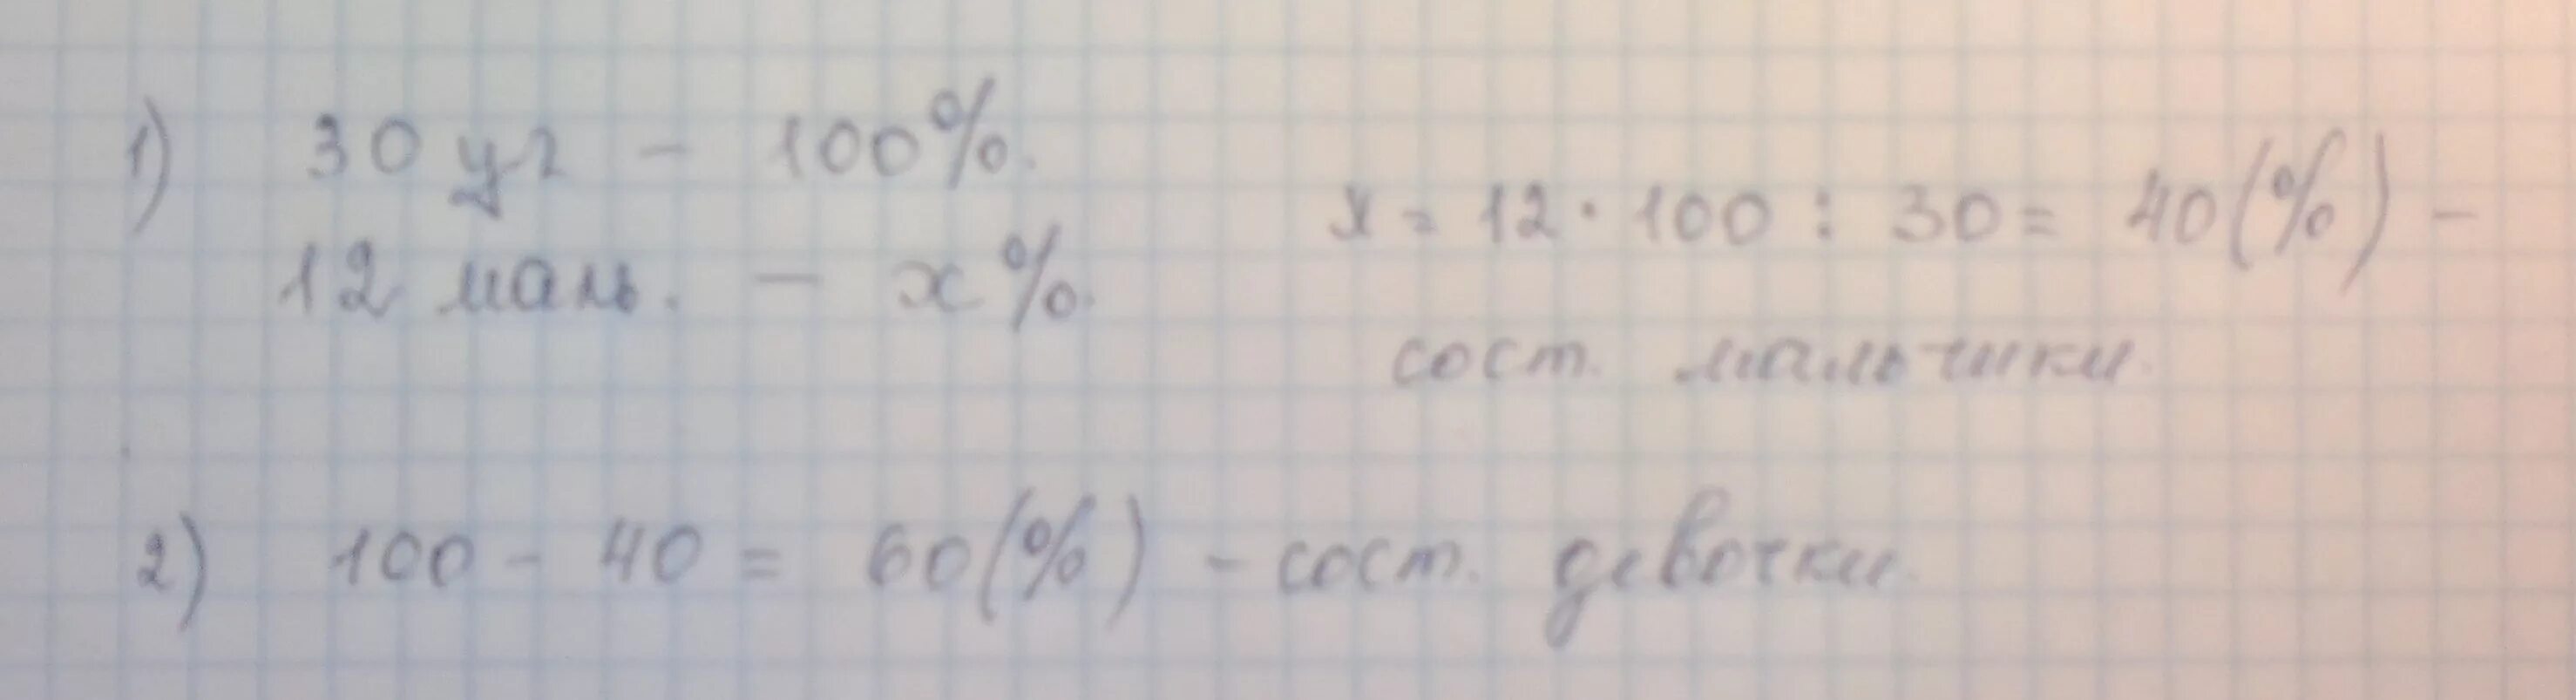 1) 30 уч - 100%.
12 маль. - x%.
x = 12 · 100 : 30 = 40(%) -
сост. мальчики.
2) 100 - 40 = 60(%) - сост. девочки.